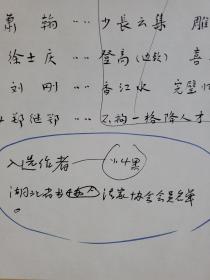 萧翰 … 少长云集 雕
徐士庆 … 登高(边款) 喜
刘刚 … 香江水 完璧归
郑继郢 … 不拘一格降人才
入选作者 小4黑
湖北省书 法家协会会员名单
。